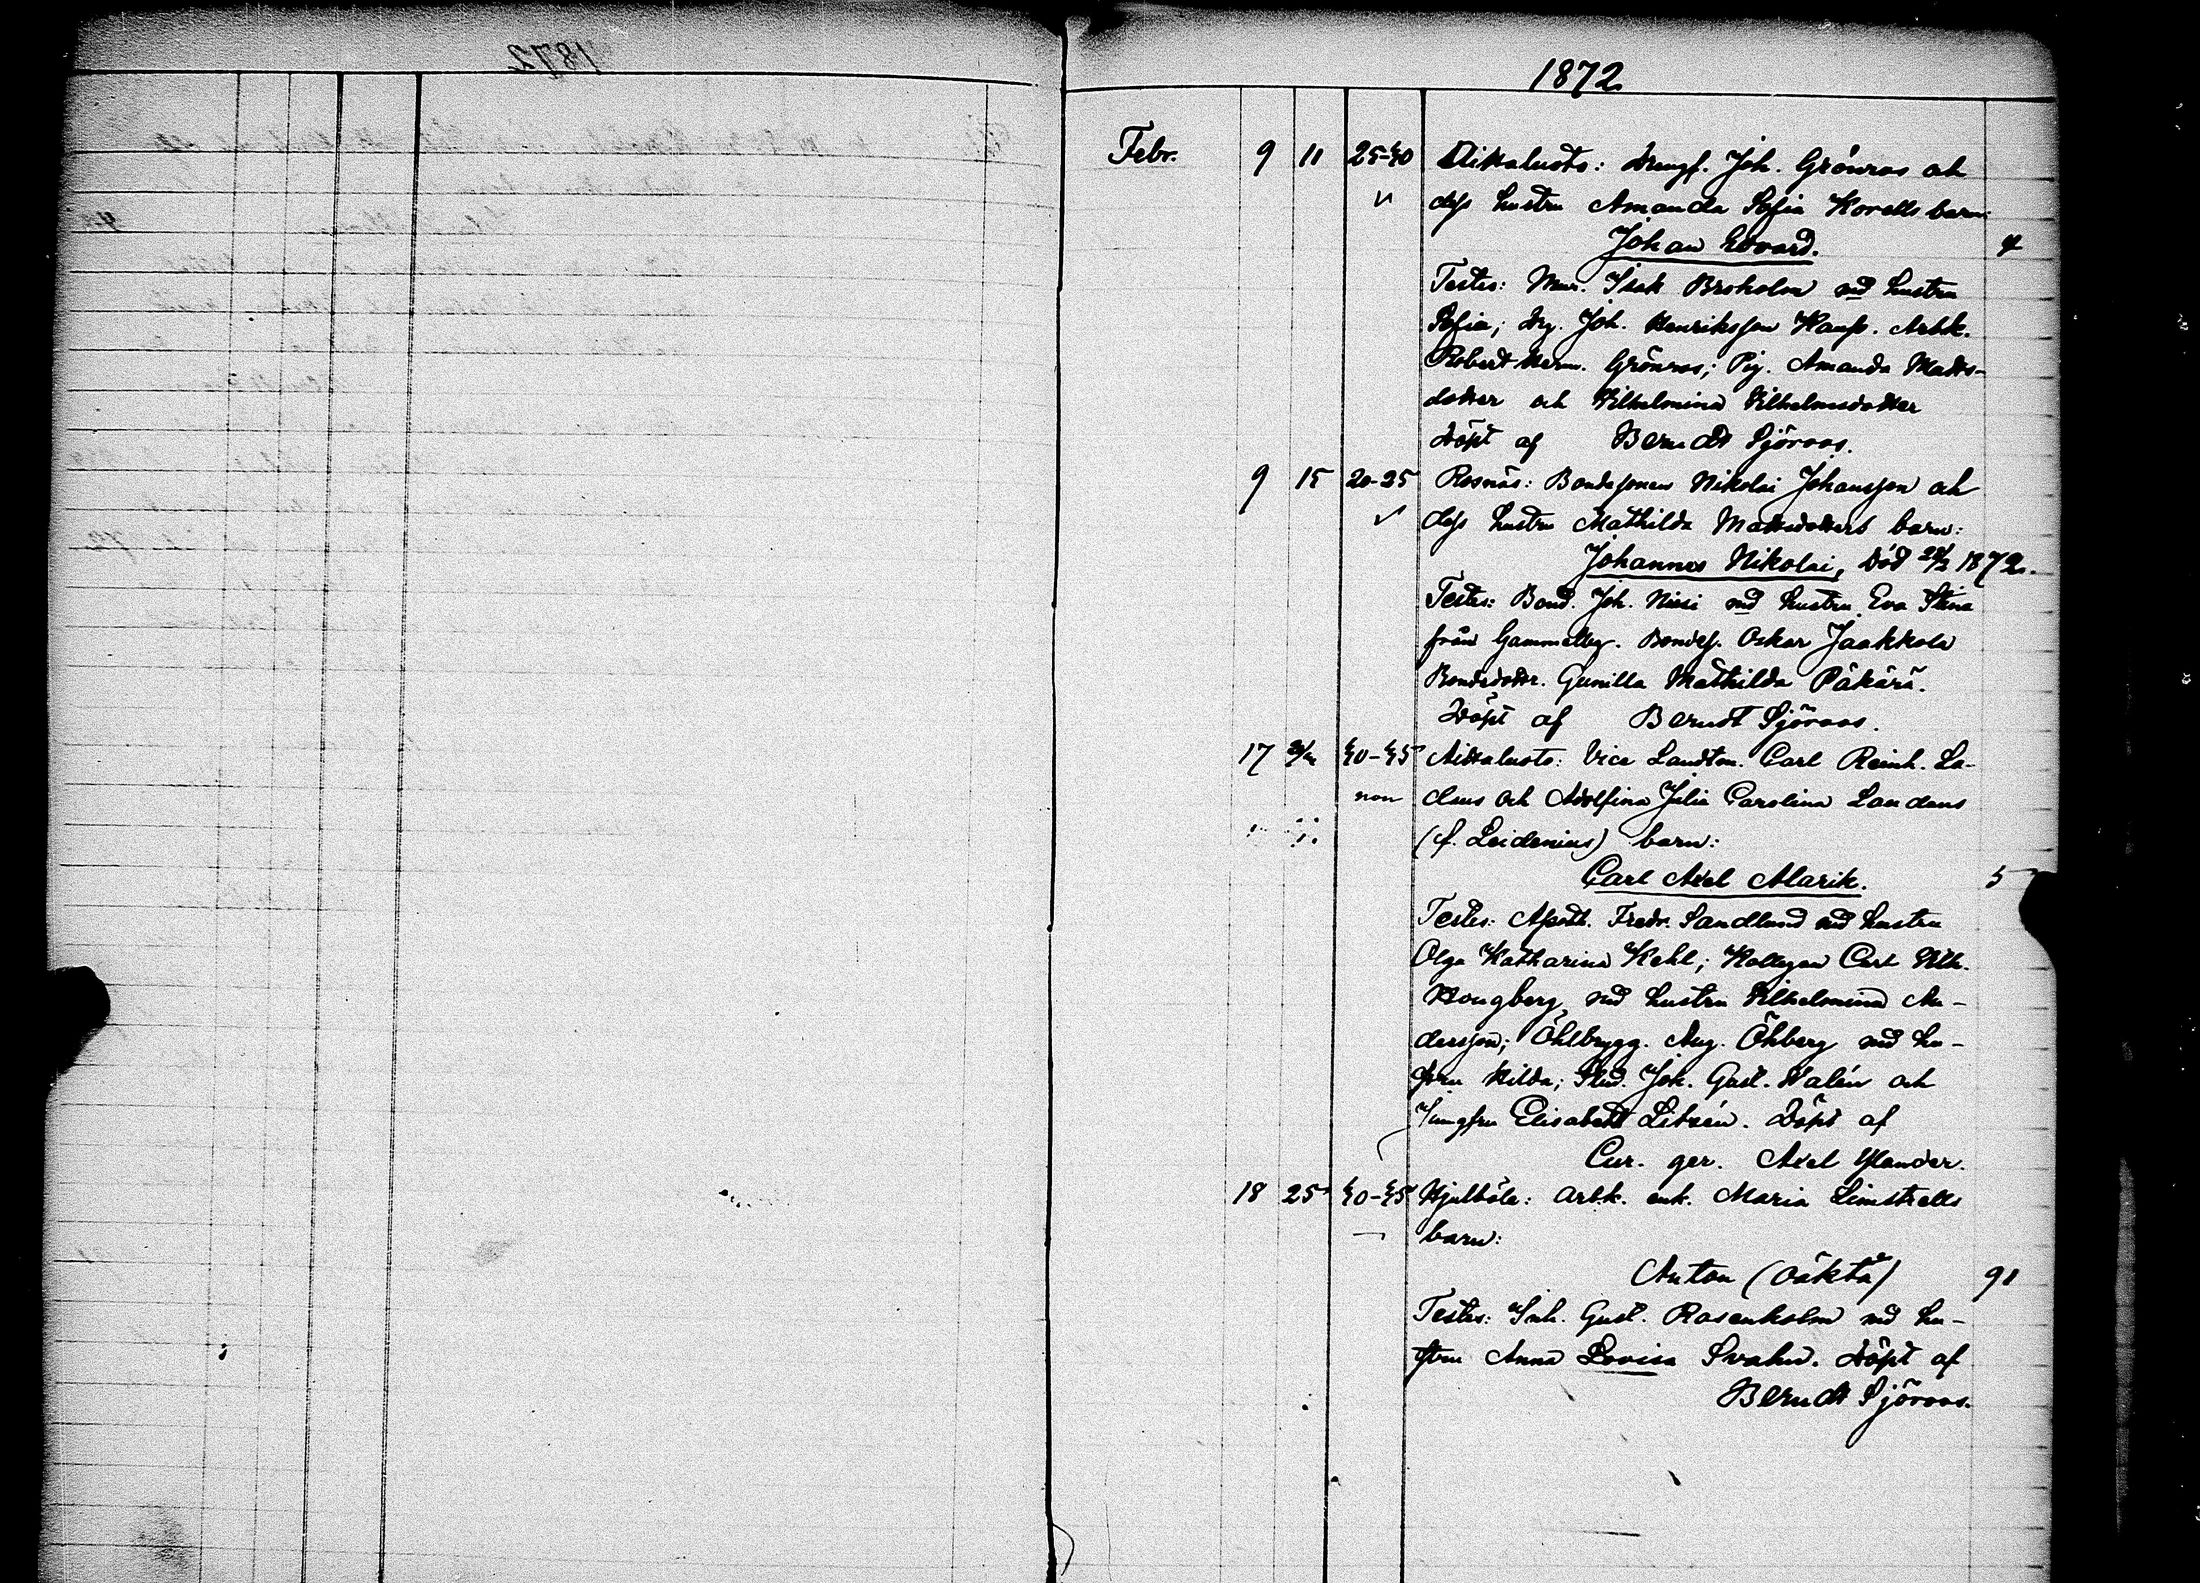 1872
Febr. 9 11 25-40 Aittaluoto: Drengf. Joh. Grönroos och
dess hustru Amanda Sofia Korells barn:
Johan Edvard. 4
Testes: Mur. Isak Broholm md hustru
Sofia; Dr. Joh. Henriksson Arbk.
Robert Herm. Grönroos; Pig. Amanda Matts-
dotter och Vilhelmina Vilhelmsdotter
Döpt af Berndt Sjöroos.
9 15 20-25 Rosnäs: Bondesonen Nikolai Johansson och
dess hustru Mathilda Mattsdotters barn:
Johannes Nikolai, död 1872.
Testes: Bond. Joh. Niesi md hustru Eva Stina
från Gammelby. Bondes. Oskar Jaakkola
Bondedottr. Gunilla Mathilda Päkärä.
Döpt af Berndt Sjöroos.
17 40-45 Aittaluoto: Vice Landtm. Carl Reinh. La-
non dens och Adolfina Julia Carolina Landens
(f. Leidenius) barn:
Carl Axel Alarik. 5
Testes: Apoth. Fredr. Sandlund md hustru
Olga Katharina Kehl; Kollegan Carl Vilh.
Hougberg md hustru Vilhelmina An-
dersson; Öhlbrygg. Aug. Öhberg md hu-
stru Hilda; Stud. Joh. Gust. Walén och
Jungfru Elisabeth Litzén. Döpt af
Cur. ger. Axel Ylander.
18 25 40-45 Hjulböle: Arbk. enk. Maria Limstrells
barn:
Anton (oäkta) 91
Testes: Inh. Gust. Rosenholm md hu-
stru Anna Lovisa Svahn. Döpt af
Berndt Sjöroos.